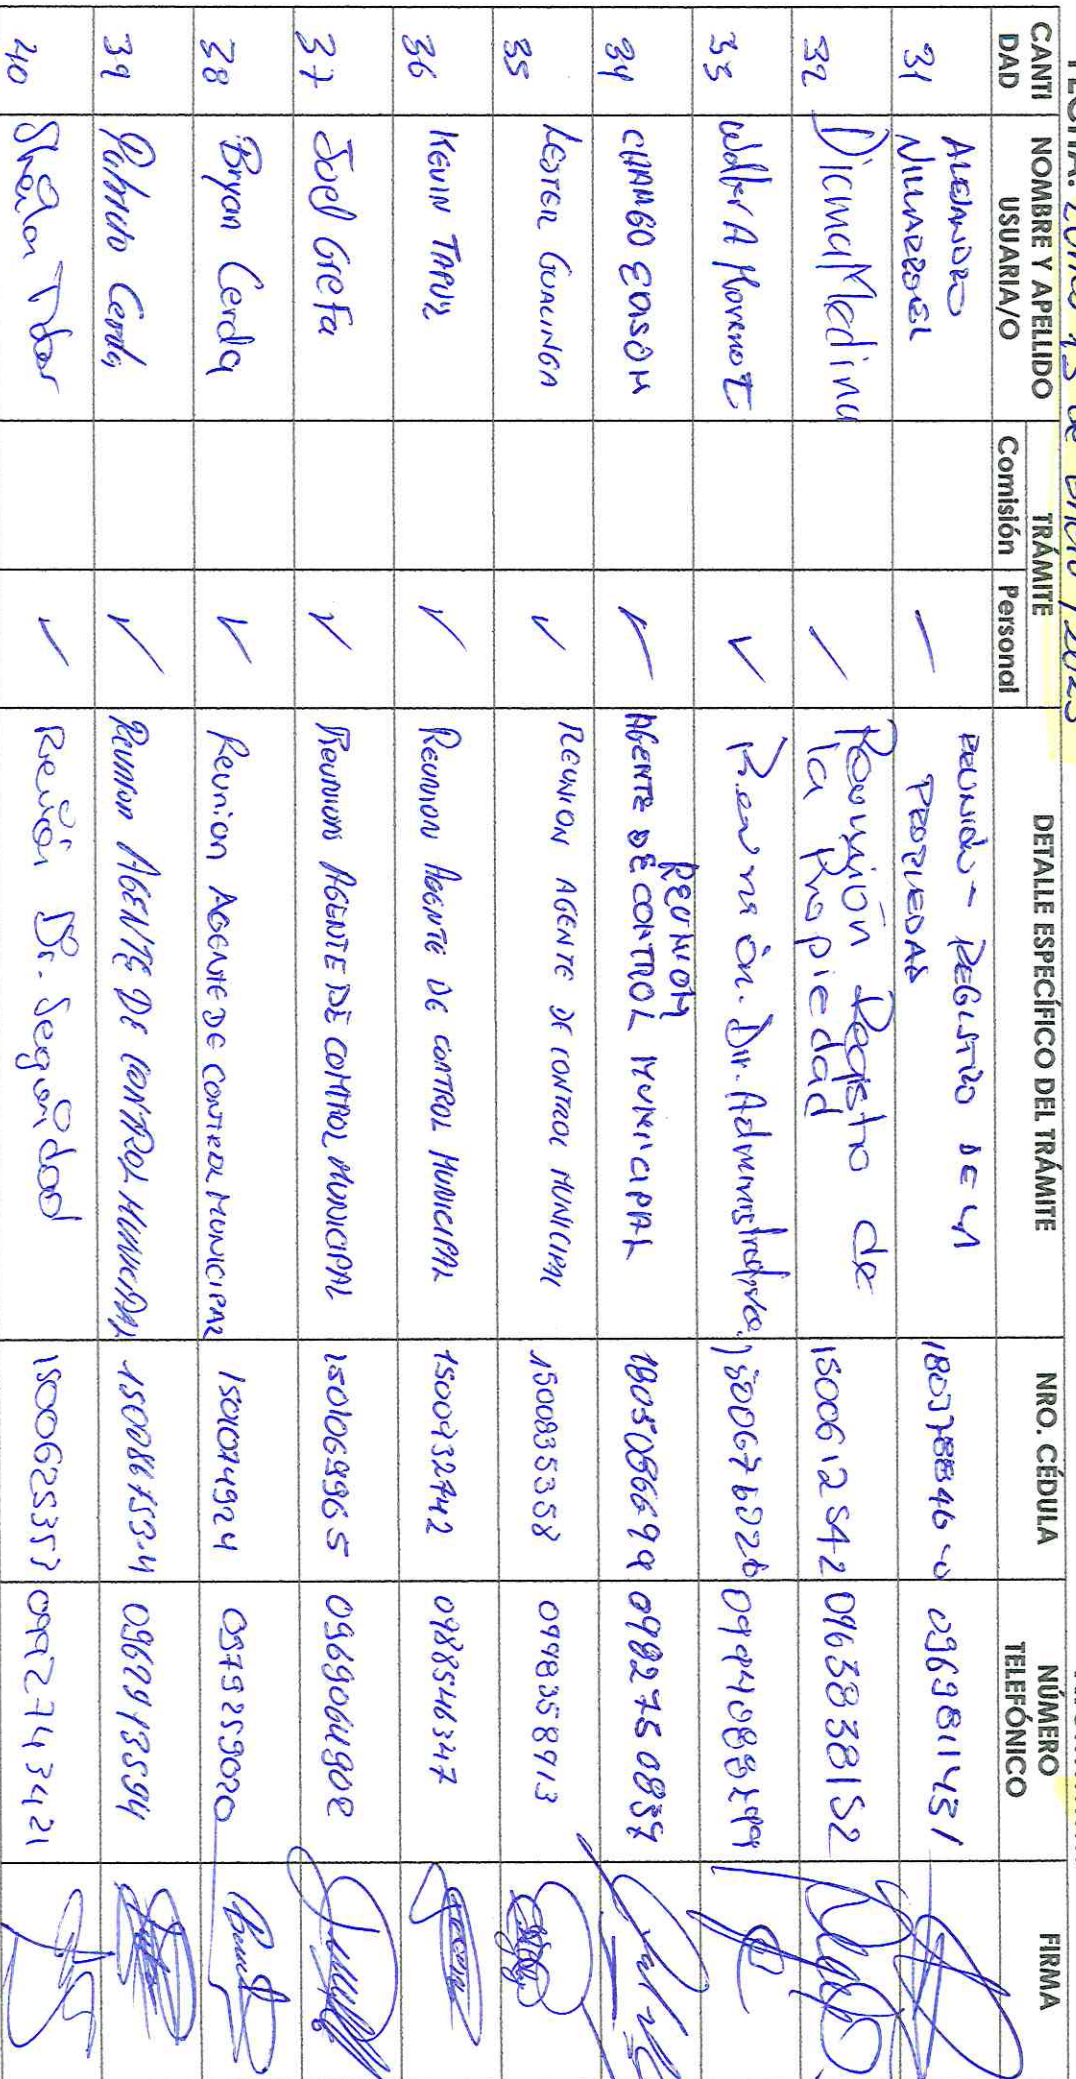 FECHA: Lunes 13 de Enero / 2025
CANTI DAD NOMBRE Y APELLIDO USUARIA/O TRÁMITE Comisión Personal DETALLE ESPECÍFICO DEL TRÁMITE NRO. CÉDULA NÚMERO TELEFÓNICO FIRMA
31 ALEJANDRO VILLARROEL — REUNIÓN - REGISTRO DE LA PROPIEDAD 0969811451
32 Dicma Medina / Reunión Registro de la Propiedad 1500612542 0963838152
33 Walter A Moreno T ✓ Reunión. Dir. Administrativa
34 CHANGO EDISON ✓ REUNION AGENTE DE CONTROL MUNICIPAL 1805056699 0982750837
35 LESTER GUALINGA ✓ REUNION AGENTE DE CONTROL MUNICIPAL 1500835358 0998358913
36 KEVIN TAPUY ✓ REUNION AGENTE DE CONTROL MUNICIPAL 1500932742 0988546347
37 Joel Grefa ✓ REUNION AGENTE DE CONTROL MUNICIPAL 1501069965 0969064908
38 Bryan Cerda ✓ Reunion AGENTE DE CONTROL MUNICIPAL 1501074924 0979259020
39 Patricio Cerda ✓ REUNION AGENTE DE CONTROL MUNICIPAL 0962913594
40 ✓ Reunión Dir. Seguridad 1500625353 0992743421